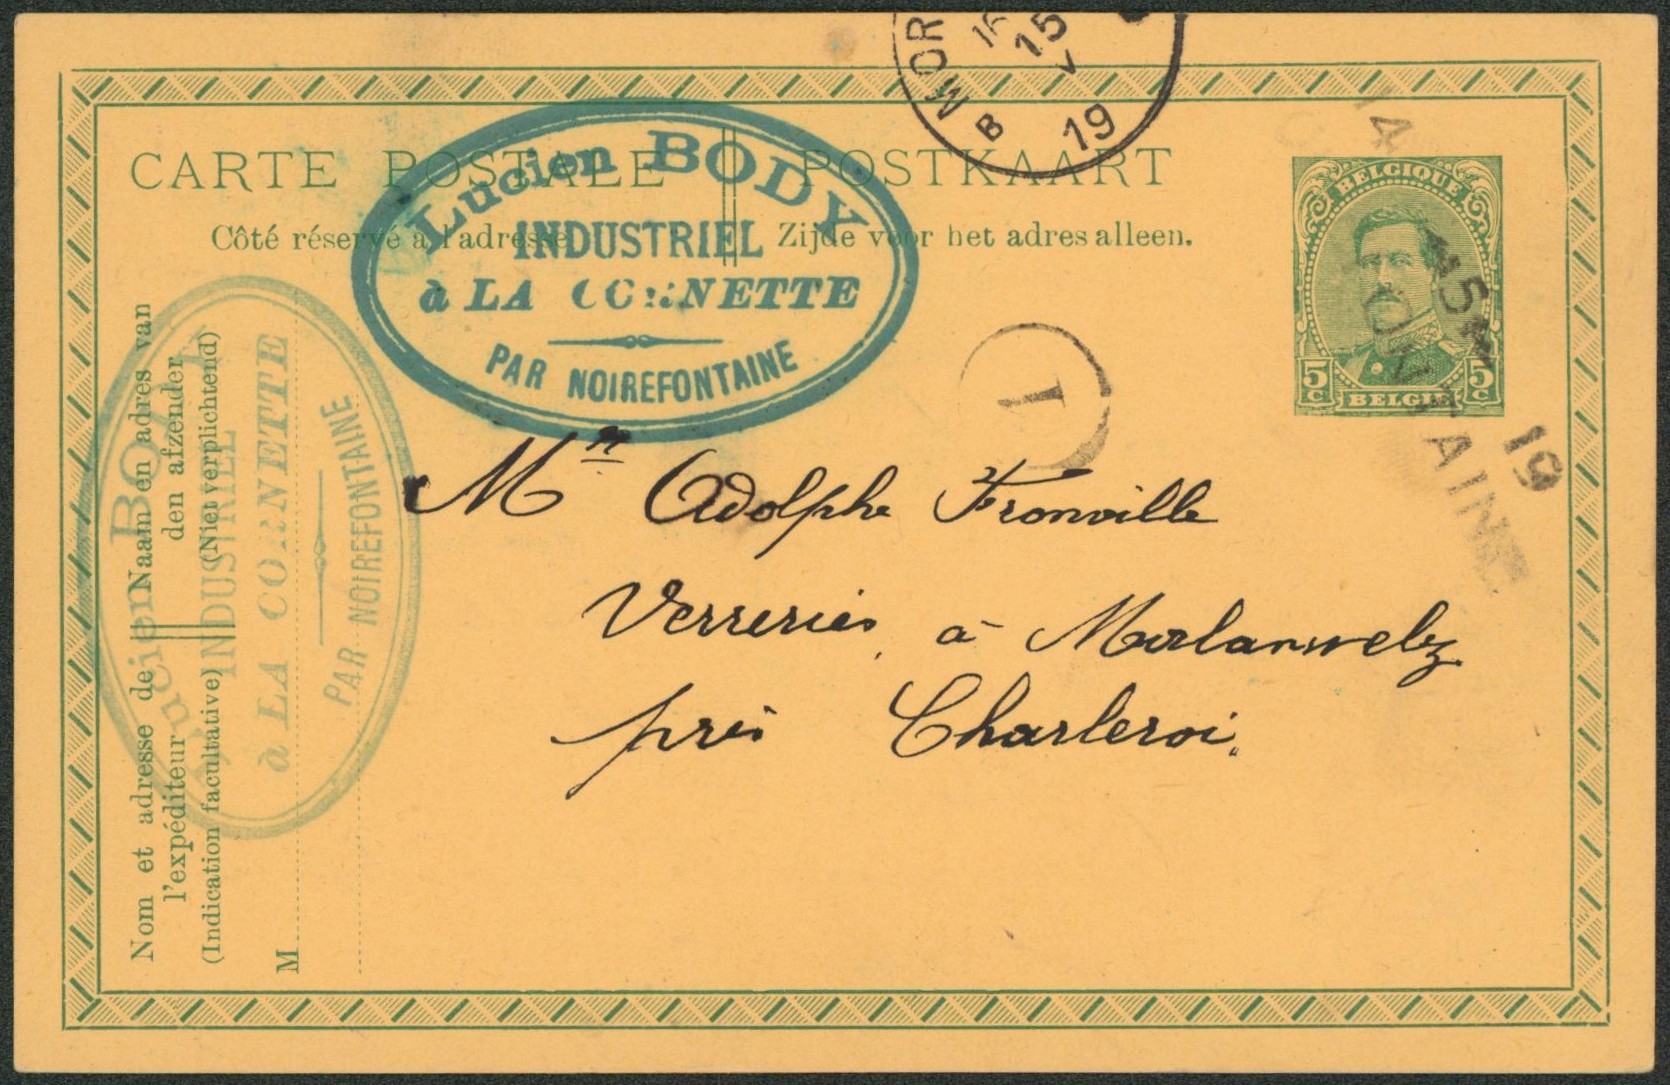 MOR
15
V
19
B
CARTE POSTALE POSTKAART
Côté réservé à l'adresse Zijde voor het adres alleen.
Lucien BODY
INDUSTRIEL
à LA CORNETTE
PAR NOIREFONTAINE
BELGIQUE
5 c 5 c
BELGIE
14
15
19
ONTAINE
1
Mr Adolphe Fronville
Verreries, à Morlanwelz
près Charleroi.
Nom et adresse de l'expéditeur
(Indication facultative)
Naam en adres van den afzender
(Niet verplichtend)
M
Lucien BODY
INDUSTRIEL
à LA CORNETTE
PAR NOIREFONTAINE